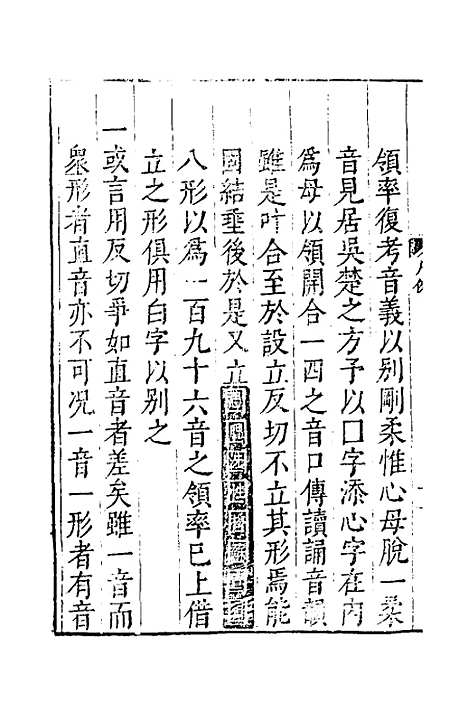 領率復考音義以别剛柔惟心母脫一柔
音見居吳楚之方予以口字添心字在内
爲母以領開合一四之音口傳讀誦音韻
雖是叶合至於設立反切不立其形焉能
國結埀後於是又立
八形以爲一百九十六音之領率巳上借
立之形俱用白字以别之
一或言用反切爭如直音者差矣雖一音而
衆形者直音亦不可况一音一形者有音